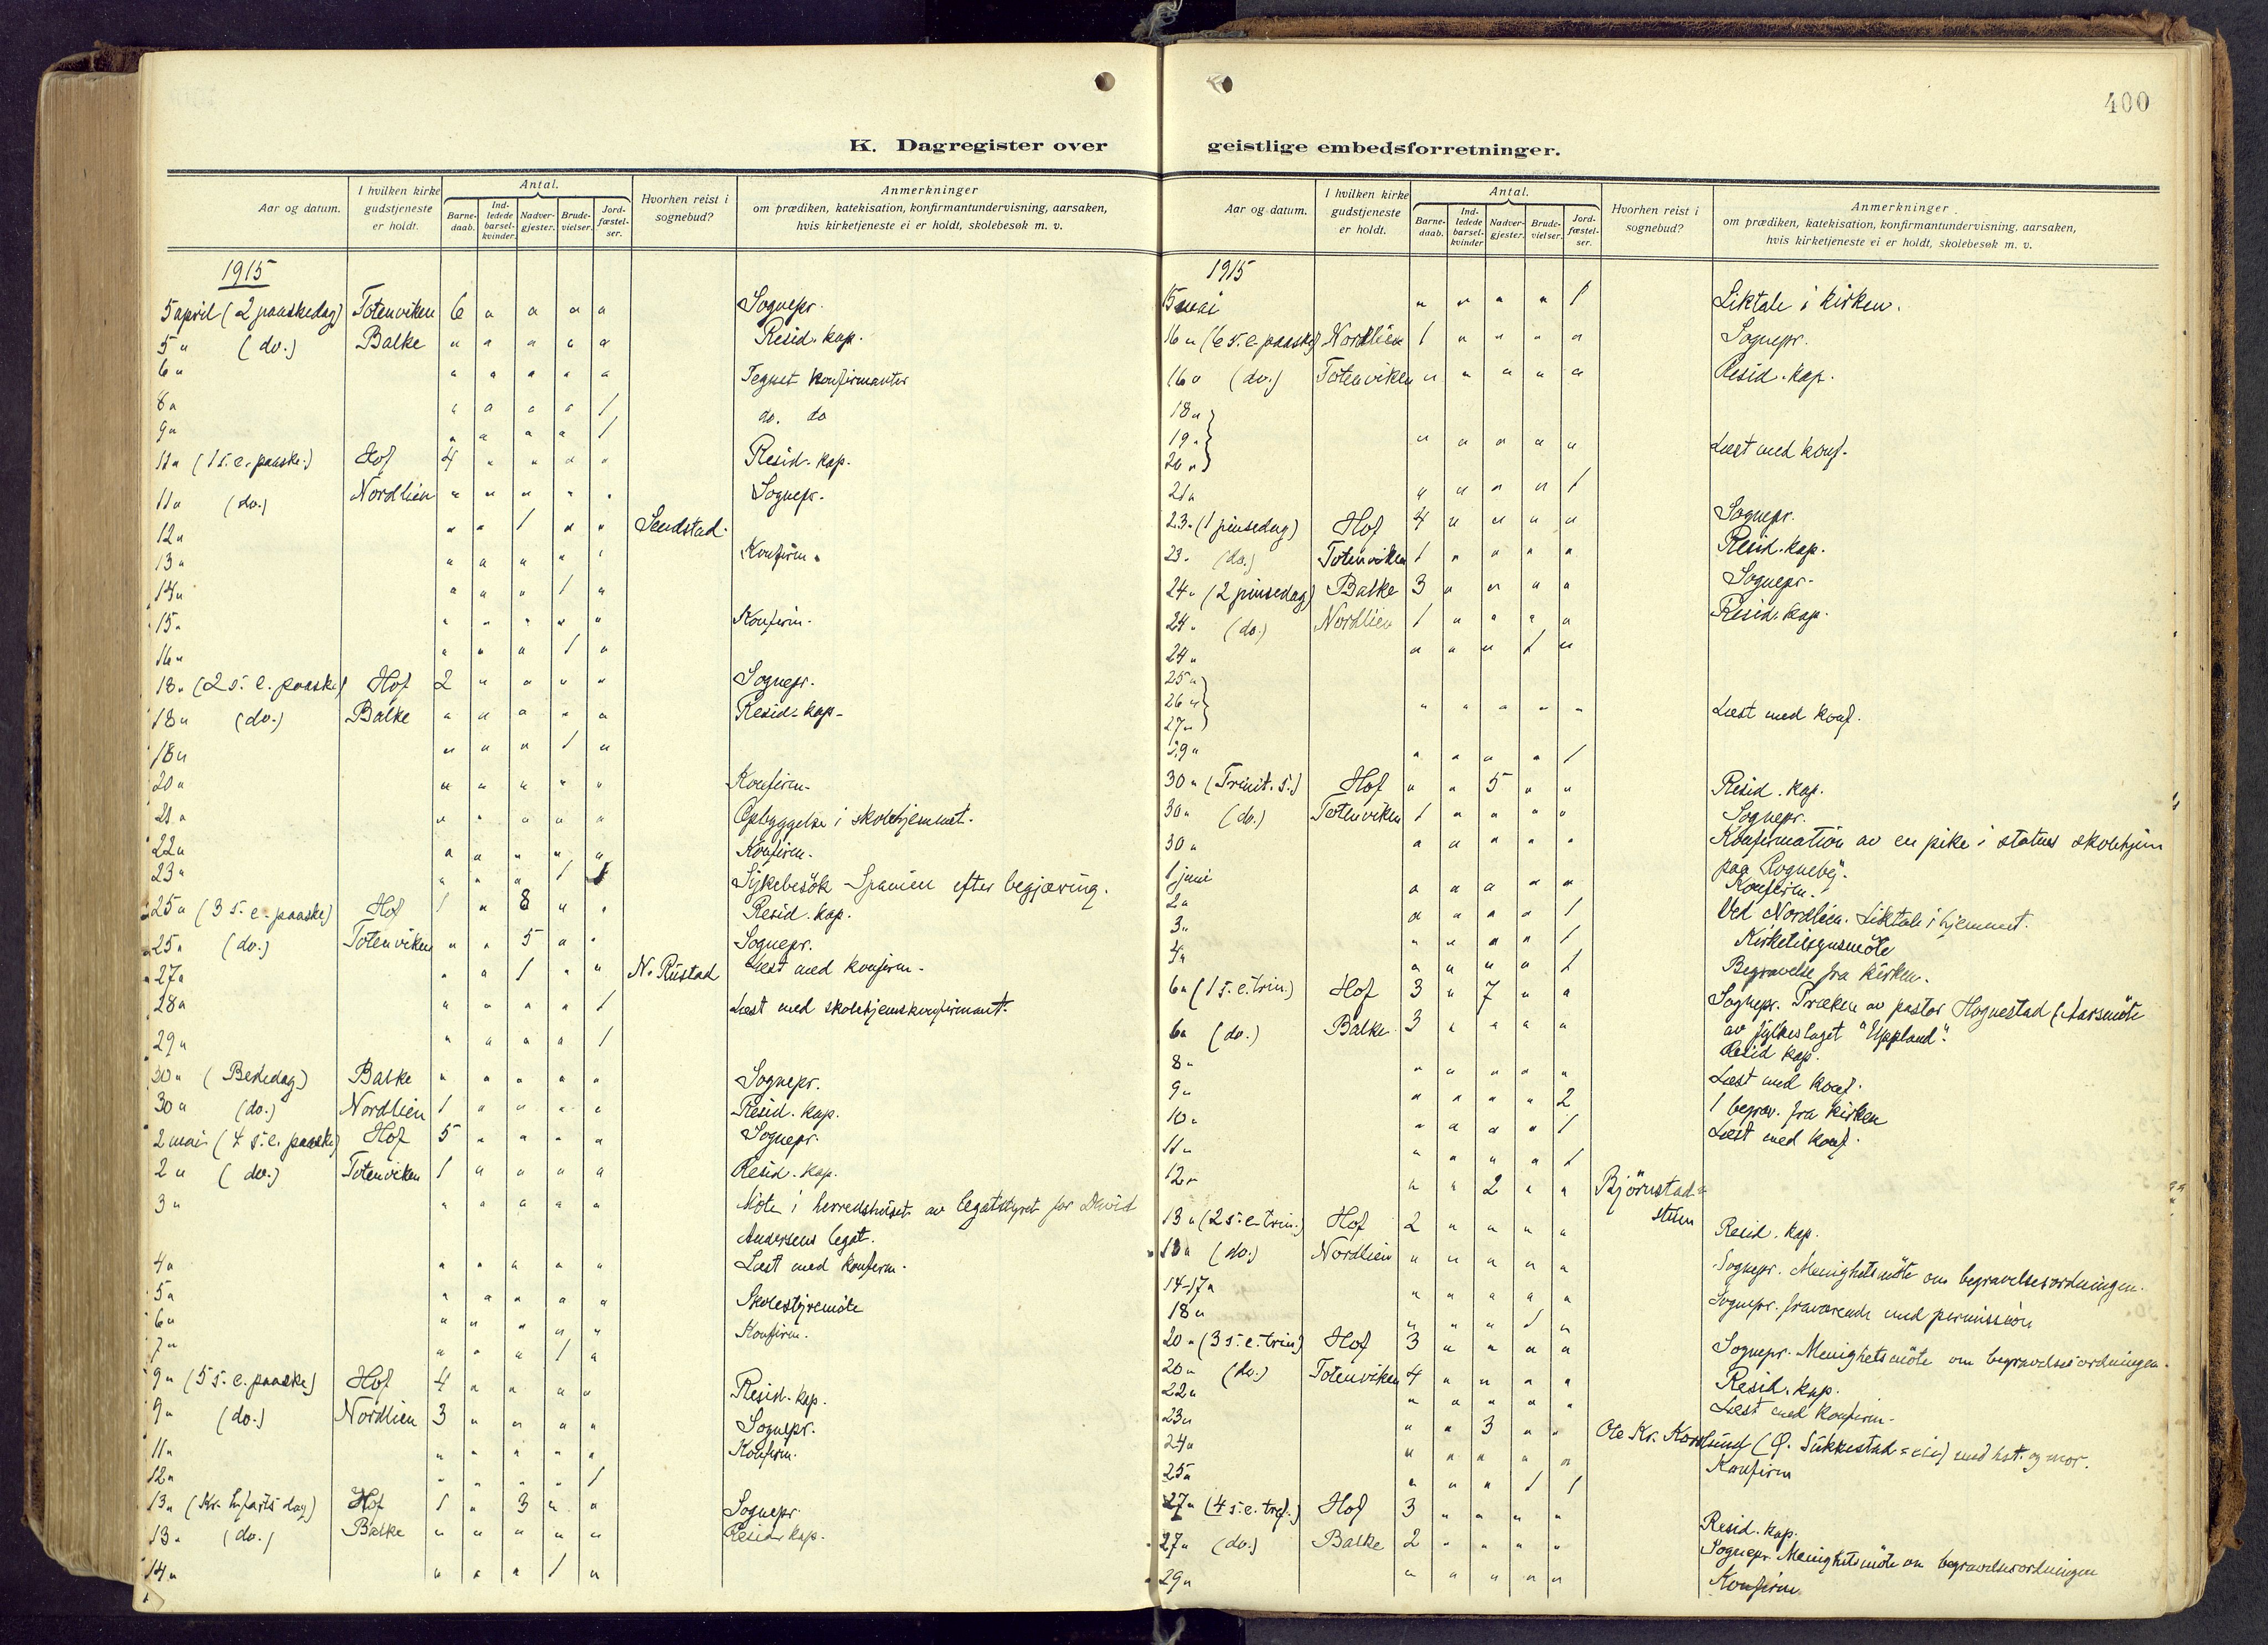 400
K. Dagregister over geistlige embedsforretninger.
Aar og datum. I hvilken kirke gudstjeneste er holdt. Antal. Barne-daab. Ind-ledede barsel-kvinder. Nadver-gjester. Brude-vielser. Jord-fæstel-ser. Hvorhen reist i sognebud? Anmerkninger om prædiken, katekisation, konfirmantundervisning, aarsaken, hvis kirketjeneste ei er holdt, skolebesøk m. v.
1915
5 april (2 paaskedag) Totenviken 6 " " " " Sognepr.
5 " (do.) Balke " " " " " Resid. kap.
6 " " " " " " Tegnet konfirmanter
8 " " " " " 1 do. do
9 " " " " " 1
11 " (1 s. e. paaske.) Hof 4 " " " " Resid. kap.
11 " (do.) Nordlien " " " " " Sognepr.
12 " " " 1 " " Sendstad.
13 " " " " " " Konfirm.
14 " " " " 1 "
15 " " " " " " Konfirm.
16 " " " " 1 "
18 " (2 s. e. paaske) Hof 2 " " " " Sognepr.
18 " (do.) Balke " " " " " Resid. kap.
18 " " " " 1 "
20 " " " " " " Konfirm.
21 " " " " " " Opbyggelse i skolehjemmet.
22 " " " " " " Konfirm.
23 " " " " 1 1 Sykebesök Spanien efter begjæring.
25 " (3 s. e. paaske) Hof 1 " 8 " " Resid. kap.
25 " (do.) Totenviken " " 5 " " Sognepr.
27 " " " 1 " " N. Rustad Læst med konfirm.
28 " " " " " 1 Læst med skolehjemskonfirmant.
29 " " " " " 1
30 " (Bededag) Balke " " " " " Sognepr.
30 " (do.) Nordlien 1 " " " " Resid. kap.
2 mai (4 s. e. paaske) Hof 5 " " " " Sognepr.
2 " (do.) Totenviken 1 " " " " Resid. kap.
3 " " " " " " Möte i herredshuset av legatstyret for David
Andersens legat.
4 " " " " " " Læst med konfirm.
5 " " " " " " Skolestyremöte
6 " " " " " " Konfirm.
7 " " " " 1 "
9 " (5 s. e. paaske) Hof 4 " " " " Resid. kap.
9 " (do.) Nordlien 3 " " " " Sognepr.
11 " " " " " " Konfirm.
12 " " " " " 1
13 " (Kr. h.farts dag) Hof 1 " 3 " " Sognepr.
13 " (do.) Balke " " " " " Resid. kap.
14 " " " " 1 "
Aar og datum. I hvilken kirke gudstjeneste er holdt. Antal. Barne-daab. Ind-ledede barsel-kvinder Nadver-gjester. Brude-vielser. Jord-fæstel-ser. Hvorhen reist i sognebud? Anmerkninger om prædiken, katekisation, konfirmantundervisning, aarsaken, hvis kirketjeneste ei er holdt, skolebesøk m. v.
1915
15 mai " " " " 1 Liktale i kirken.
16 " (6 s. e. paaske) Nordlien 1 " " " " Sognepr.
16 " (do.) Totenviken " " " " " Resid. kap.
18 "
19 " " " " " " Læst med konf.
20 "
21 " " " " " 1
23 " (1 pinsedag) Hof 4 " " " " Sognepr.
23 " (do.) Totenviken 1 " " " " Resid. kap.
24 " (2 pinsedag) Balke 3 " " " " Sognepr.
24 " (do.) Nordlien 1 " " " " Resid. kap.
24 " " " " 1 "
25 "
26 " " " " " " Læst med konf.
27 "
29 " " " " " 1
30 " (Trinit. s.) Hof " " 5 " " Resid. kap.
30 " (do.) Totenviken 1 " " " " Sognepr.
30 " " " " " " Konfirmation av en pike i statens skolehjem
paa
1 juni " " " " " Konfirm.
2 " " " " " 1 Ved Nordlien. Liktale i hjemmet.
3 " " " " " 1 Kirketilsynsmöte
4 " " " " " 1 Begravelse fra kirken.
6 " (1 s. e. trin.) Hof 3 " 7 " " Sognepr. Præken av pastor Hognestad (Aarsmöte
av fylkeslaget "Uppland".
6 " (do.) Balke 3 " " " " Resid kap.
8 " " " " " " Læst med konf.
9 " " " " " 2 1 begrav. fra kirken
10 " " " " " 1 Læst med konf.
11 " " " " " 1
12 " " " 2 " " Björnstad=
stuen
13 " (2 s. e. trin.) Hof 2 " " " " Resid. kap.
13 " (do.) Nordlien " " " " " Sognepr. Menighetsmöte om begravelsesordningen.
14-17 " " " " " " Sognepr. fraværende med permission
18 " " " " 1 "
20 " (3 s. e. trin) Hof 3 " " " " Sognepr. Menighetsmöte om begravelsesordningen.
20 " (do.) Totenviken 4 " " " " Resid. kap.
22 " " " " " " Læst med konfirm.
23 " " " 3 " " Ole Kr. (Ø. Sukkestad=eie) med hst. og mor.
24 " " " " " " Konfirm
25 " " " " 1 1
27 " (4 s. e. tref.) Hof 3 " " " " Resid. kap.
27 " (do.) Balke 2 " " " " Sognepr. Menighetsmöte om begravelsesordningen
29 " " " " " " Konfirm